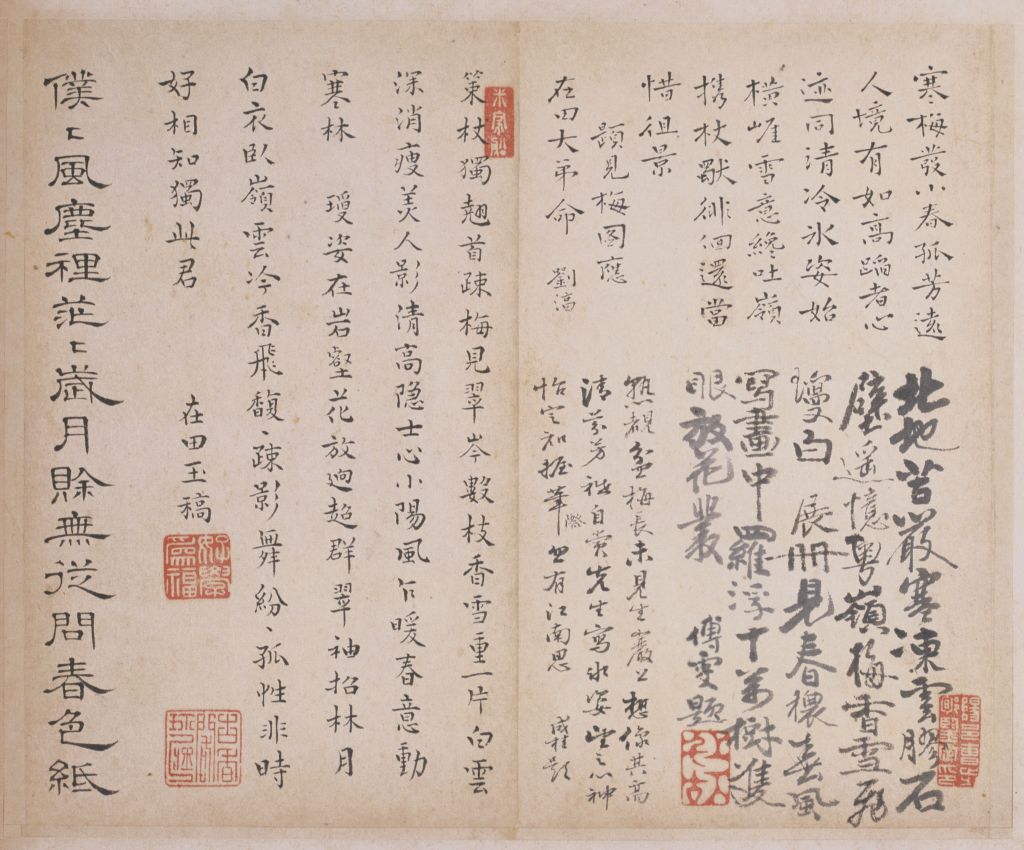 寒梅發小春孤芳遠
人境有如高蹈者心
迹同清冷氷姿始
橫崖雪意纔吐嶺
攜杖歇徘徊還當
惜徂景
題見梅圖應
在田大弟命 劉滈
北地苦嚴寒凍雲膠石
壁遥憶粤嶺梅香雪飛
瓊白 展冊見春穠春風
寫畫中羅浮十萬樹隻
眼放花叢 傅雯題
熟観盆梅長未見生巖上想像其高
清芬芳祗自賞先生寫氷姿坐忘神
怡定知握筆際忽有江南思
策杖獨翹首疎梅見翠岑數枝香雪重一片白雲
深消瘦美人影清高隐士心小陽風乍暖春意動
寒林 瓊姿在岩壑花放迥超群翠袖招林月
白衣臥嶺雲冷香飛馥〻疎影舞紛〻孤性非時
好相知獨此君
在田玉稿
僕〻風塵裡茫〻歲月賒無從問春色紙